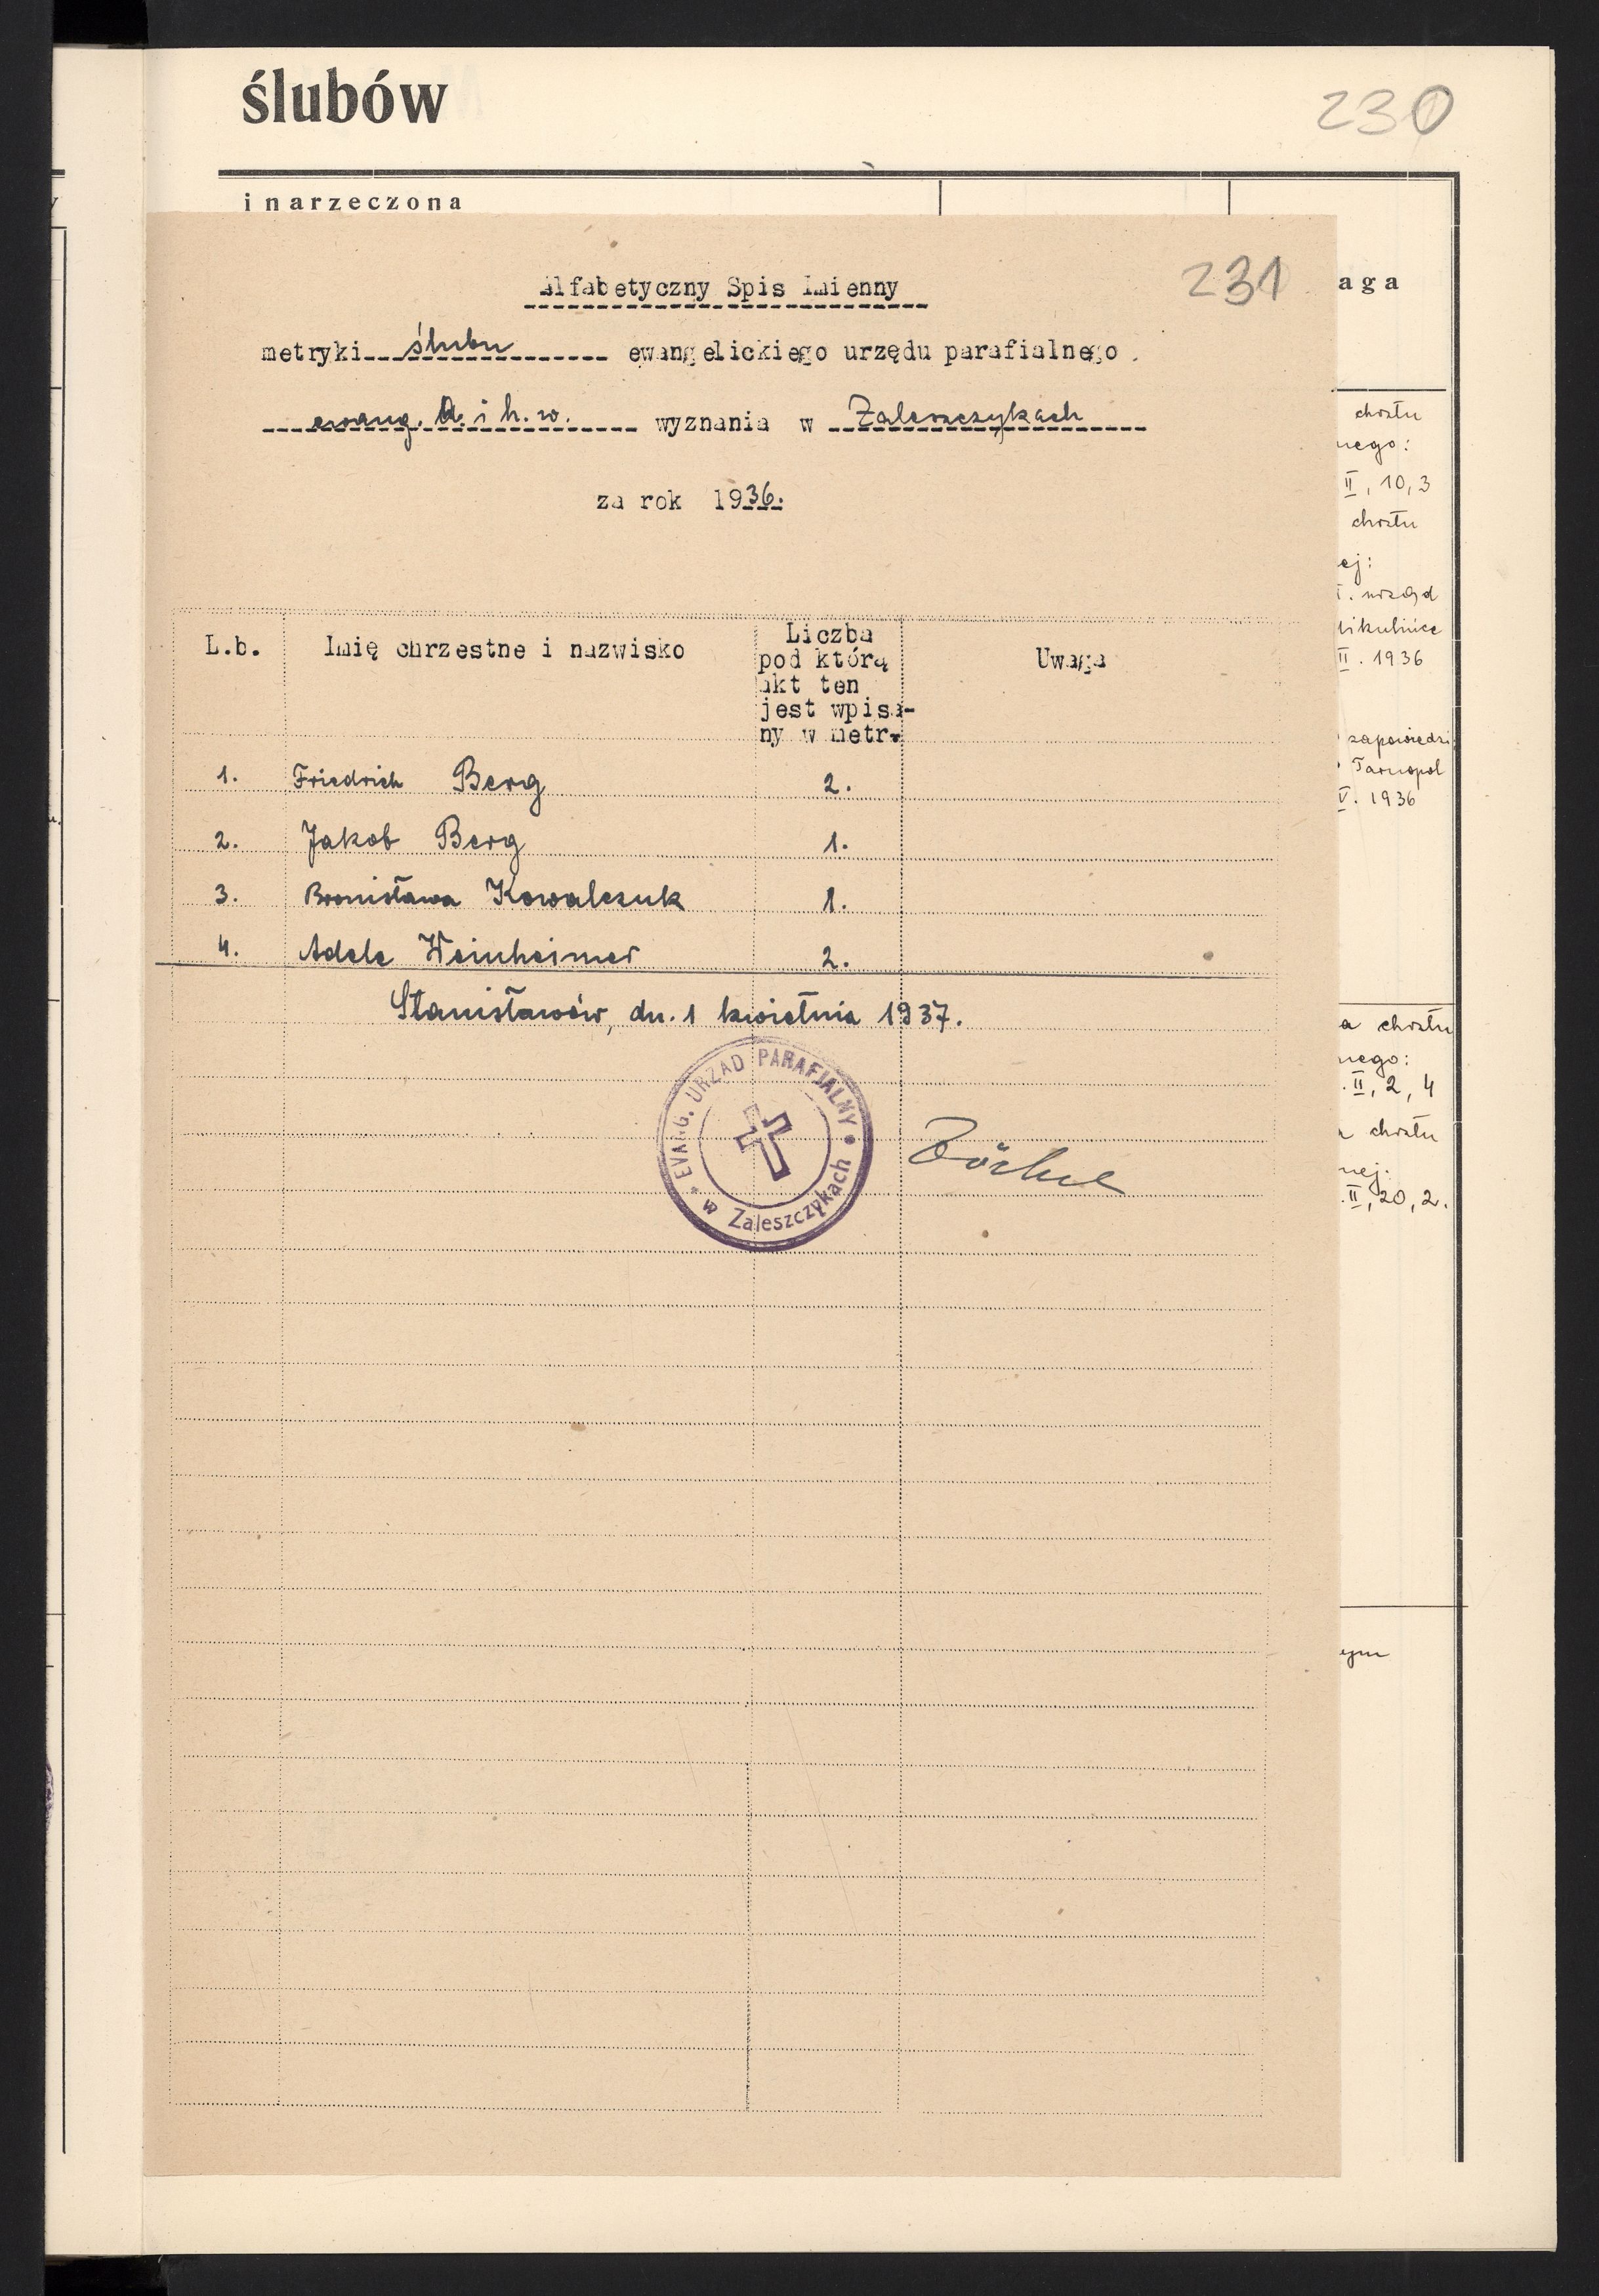 ślubów
230
i narzeczona
231
Alfabetyczny Spis Imienny
metryki ślubu ewangelickiego urzędu parafialnego
ewang. A. i h. w. wyznania w Zaleszczykach
za rok 1936.
L.b. Imię chrzestne i nazwisko Liczba pod którą akt ten jest wpisa- ny w metr. Uwaga
1. Friedrich Berg 2.
2. Jakob Berg 1.
3. Bronisława Kowalczuk 1.
4. Adele Weinheimer 2.
Stanisławów, dn. 1 kwietnia 1937.
EVANG. URZAD PARAFIALNY
w Zaleszczykach
aga
chrztu
nego:
II, 10, 3
chrztu
ej:
urząd
ikulińce
II. 1936
zapowiedzi
Tarnopol
V. 1936
a chrztu
nego:
II, 2, 4
chrztu
nej:
II, 20, 2.
ym